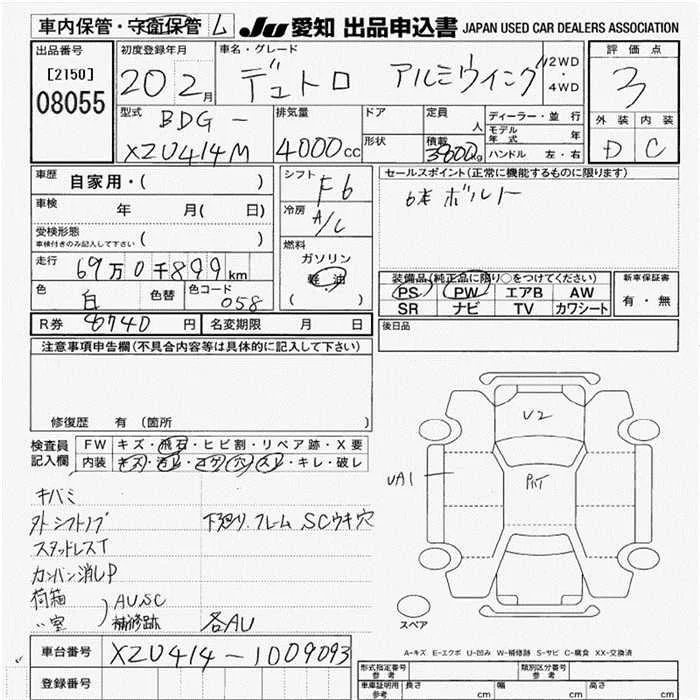 車内保管・守衛保管 ム JU 愛知 出品申込書 JAPAN USED CAR DEALERS ASSOCIATION
出品番号 初度登録年月 車名・グレード 評価点
[2150] 20 2月 デュトロ アルミウイング 2WD・4WD 3
08055
型式 排気量 ドア 定員 人 ディーラー・並行 外装 内装
BDG- 4000cc 形状 積載 3800kg モデル年式 年 D C
XZU414M ハンドル 左・右
車歴 自家用・( ) シフト F6 セールスポイント(正常に機能するものに限ります)
車検 年 月( 日) 冷房 A/C 6本ボルト
受検形態 ( )
車検付きのみ記入して下さい
燃料
走行 69万0千899km ガソリン
軽油
( )
装備品(純正品に限り○をつけてください) 新車保証書
色 白 色替 色コード 058 PS PW エアB AW 有・無
SR ナビ TV カワシート
R券 8740円 名変期限 月 日 後日品
注意事項申告欄(不具合内容等は具体的に記入して下さい)
修復歴 有 (箇所 )
検査員記入欄 FW キズ・飛石・ヒビ割・リペア跡・X要
内装 キズ・汚レ・コゲ・穴・スレ・キレ・破レ
V2
UA1
キバミ
外シフトノブ 下廻リ、フレーム、SCウキ穴
スタッドレスT
カンバン消しP
荷箱 AU、SC
〃室 補修跡 各AU
スペア
A-キズ E-エクボ U-凹み W-補修跡 S-サビ C-腐食 XX-交換済
車台番号 XZU414-1009093
登録番号
形式指定番号 参考 類別区分番号 参考
車庫証明用 参考 長さ cm 幅 cm 高さ cm